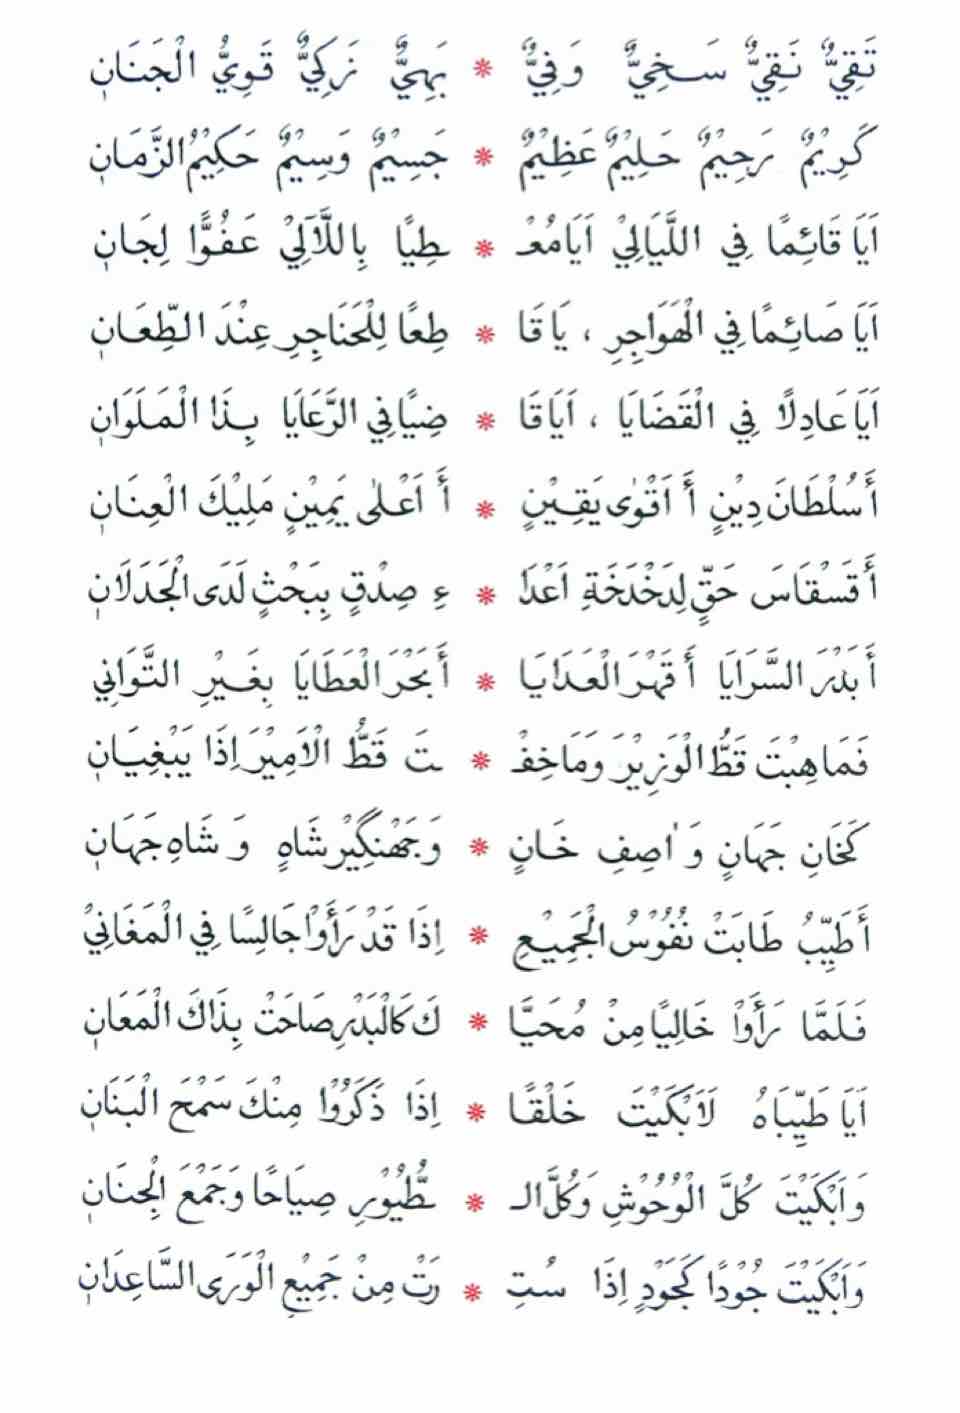 تَقِيٌّ نَقِيٌّ سَخِيٌّ وَفِيٌّ * بَهِيٌّ زَكِيٌّ قَوِيُّ الْجَنَانِ
كَرِيْمٌ رَحِيْمٌ حَلِيْمٌ عَظِيْمٌ * جَسِيْمٌ وَسِيْمٌ حَكِيْمُ الزَّمَانِ
اَيَا قَائِمًا فِي اللَّيَالِيْ اَيَا مُعْـ * ـطِيًا بِاللَّآلِيْ عَفُوًّا لِجَانِ
اَيَا صَائِمًا فِي الْهَوَاجِرِ ، يَا قَا * طِعًا لِلْحَنَاجِرِ عِنْدَ الطِّعَانِ
اَيَا عَادِلًا فِي الْقَضَايَا ، اَيَا قَا * ضِيًا فِي الرَّعَايَا بِذَا الْمَلَوَانِ
أَسُلْطَانَ دِيْنٍ أَ اَقْوٰى يَقِيْنٍ * أَ اَعْلٰى يَمِيْنٍ مَلِيْكَ الْعِنَانِ
أَقَسْقَاسَ حَقٍّ لِدَخْدَخَةِ اَعْدَا * ءِ صِدْقٍ بِبَحْثٍ لَدَى الْجَدَلَانِ
أَبَدْرَ السَّرَايَا أَقَهْرَ الْعَدَايَا * أَبَحْرَ الْعَطَايَا بِغَيْرِ التَّوَانِي
فَمَا هِبْتَ قَطُّ الْوَزِيْرَ وَمَا خِفْـ * ـتَ قَطُّ الْاَمِيْرَ اِذَا يَبْغِيَانِ
كَخَانِ جَهَانٍ وَ اٰصِفِ خَانٍ * وَجَهَنْگِيْر شَاهٍ وَ شَاهِ جَهَانِ
أَطَيِّبُ طَابَتْ نُفُوْسُ الْجَمِيْعِ * اِذَا قَدْ رَأَوْا جَالِسًا فِي الْمَغَانِيْ
فَلَمَّا رَأَوْا خَالِيًا مِنْ مُحَيَّا * كَ كَالْبَدْرِ صَاحَتْ بِذَاكَ الْمَعَانِ
اَيَا طَيِّبَاهُ لَاَبْكَيْتَ خَلْقًا * اِذَا ذَكَرُوْا مِنْكَ سَمْحَ الْبَنَانِ
وَاَبْكَيْتَ كُلَّ الْوُحُوْشِ وَكُلَّ الـ * ـطُّيُوْرِ صِيَاحًا وَجَمْعَ الْجِنَانِ
وَاَبْكَيْتَ جُوْدًا كَجَوْدٍ اِذَا سُتِ * رَتْ مِنْ جَمِيْعِ الْوَرَى السَّاعِدَانِ